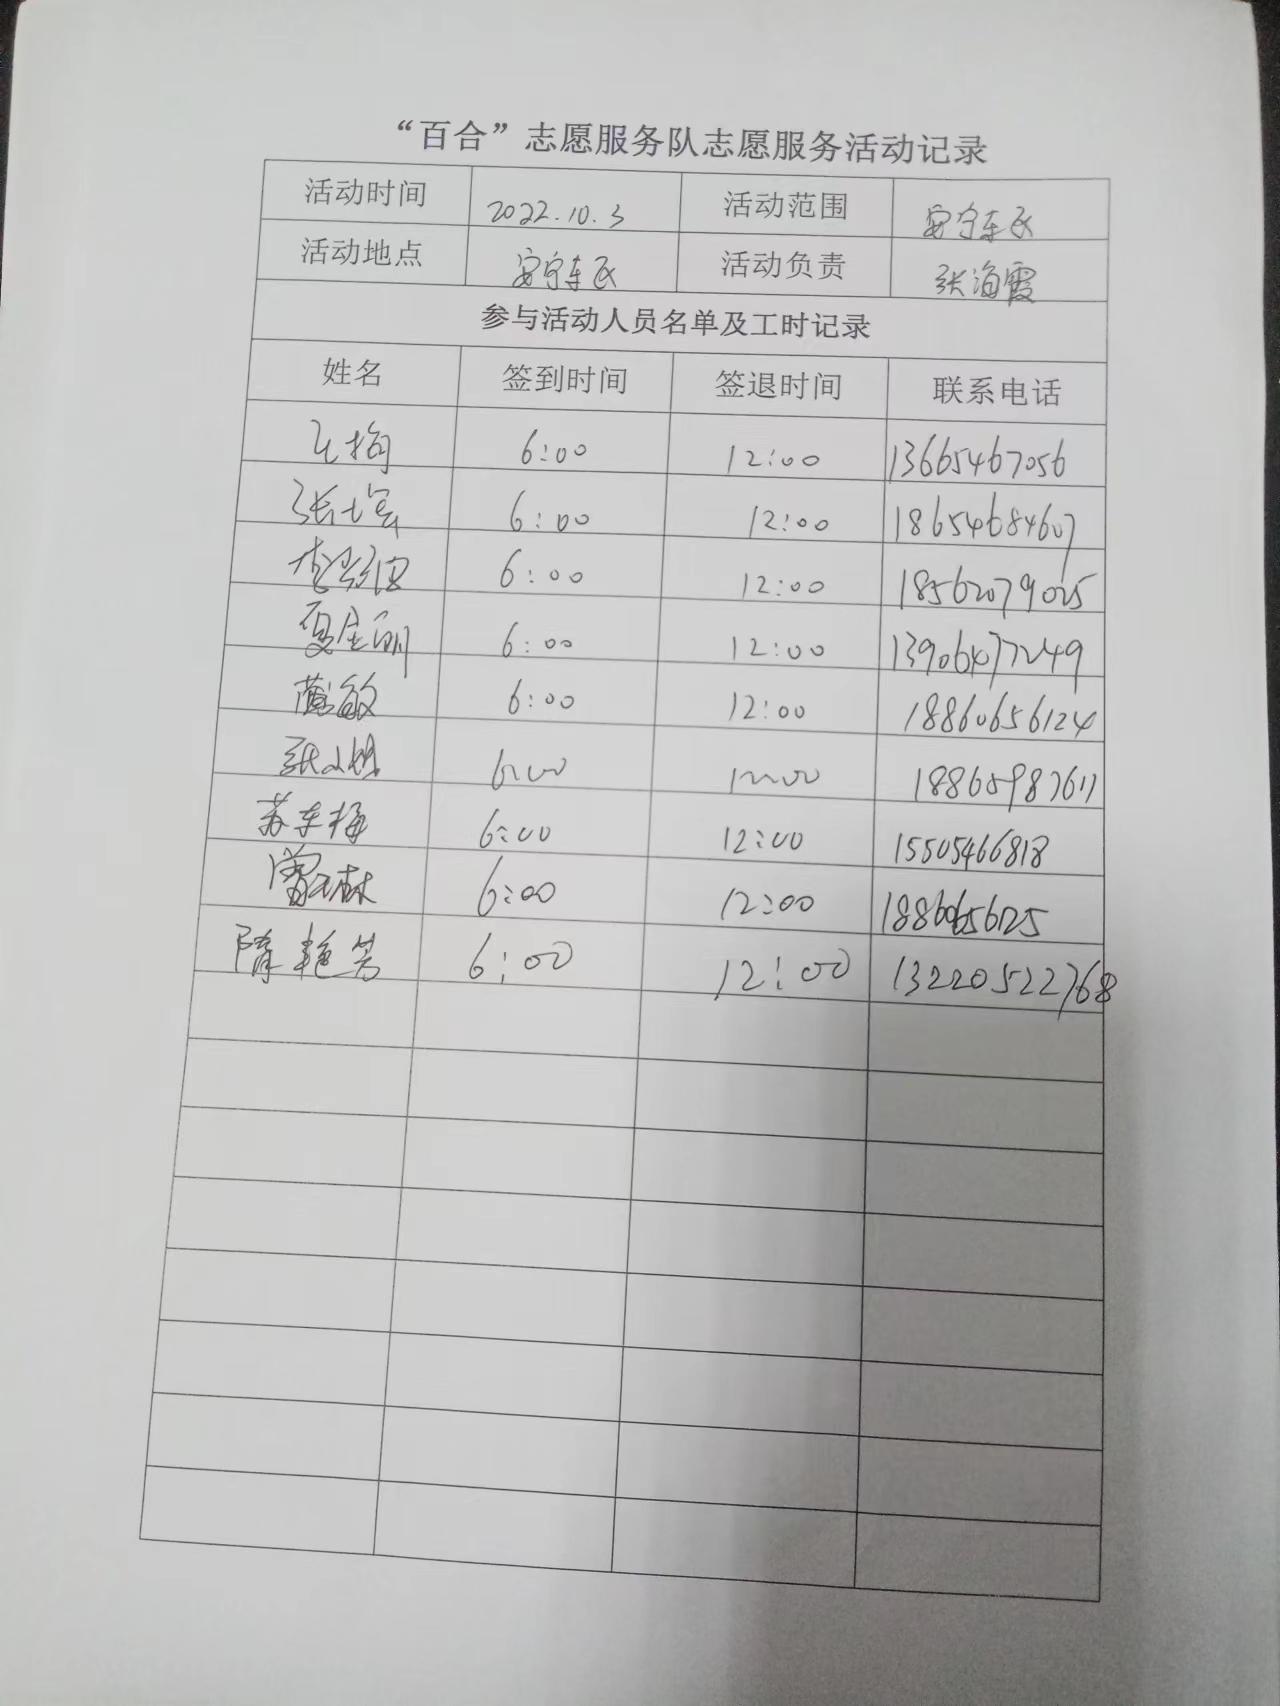 “百合”志愿服务队志愿服务活动记录
活动时间 2022.10.3 活动范围 安宁东区
活动地点 安宁东区 活动负责 张海霞
参与活动人员名单及工时记录
姓名 签到时间 签退时间 联系电话
6:00 12:00 13665467056
6:00 12:00 18654684607
6:00 12:00 18562079025
6:00 12:00 13906477249
敏 6:00 12:00 18860656124
张 6:00 12:00 18865987611
苏东梅 6:00 12:00 15505466818
林 6:00 12:00 18860656125
隋艳芳 6:00 12:00 13220522768